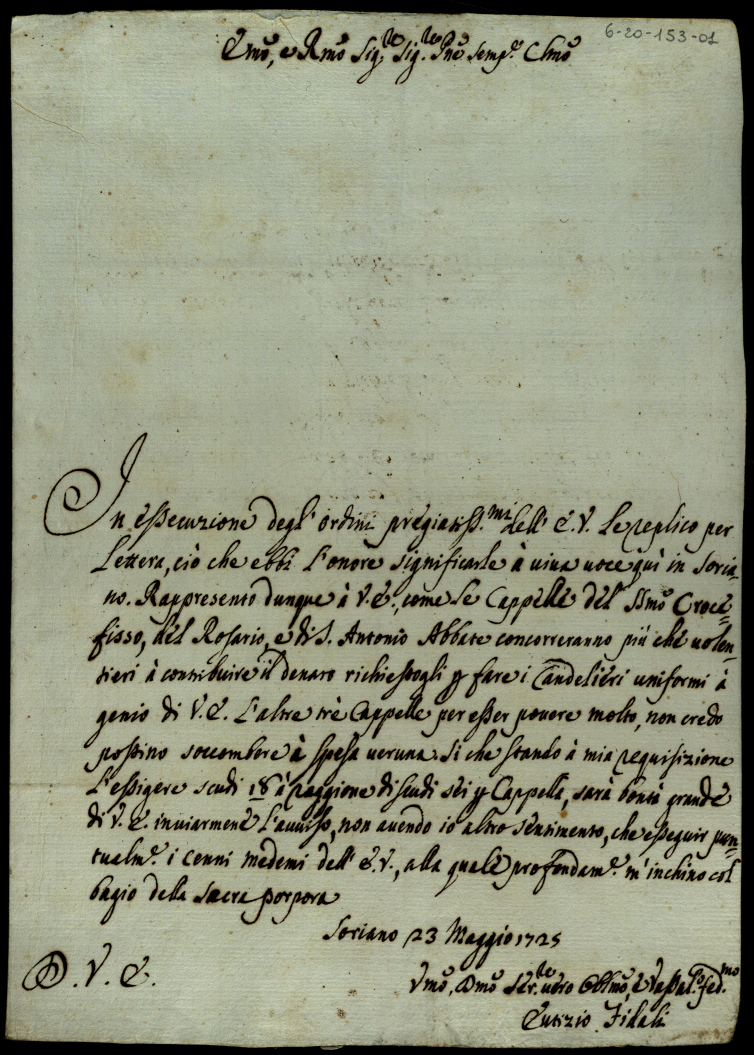 6-20-153-01
Emo, e Rmo Sig.re Sig.re Pne Semp.e Clmo
In essecuzione degl'ordini pregiatiss.mi dell'E.V. Le replico per
Lettera, ciò che ebbi l'onore significarle à viva voce quì in Soria-
no. Rappresento dunque à V.E., come le Cappelle del SSmo Croce-
fisso, del Rosario, e di S. Antonio Abbate concorreranno più che volen-
tieri à contribuire il denaro richiestogli p fare i Candelieri uniformi à
genio di V.E. L'altre trè Cappelle per esser povere molto, non credo
possino soccombere à spesa veruna. Si che stando à mia requisizione
l'essigere scudi 18 à raggione di scudi sei p Cappella, sarà bontà grande
di V.E. inviarmene l'avviso, non avendo io altro sentimento, che esseguir pun-
tualm.e i cenni medemi dell'E.V., alla quale profondam.e m'inchino col
bagio della sacra porpora
Soriano 23 Maggio 1725
D.V.E.
Vmo, Dmo Ser.re vero Obblmo, e Vassal.o fed.mo
Eutizio Fidali